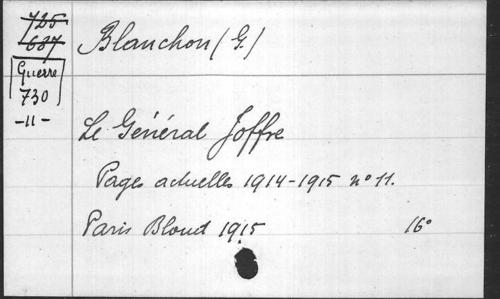 725
687
Guerre
730
-11-
Blanchon (G.)
Le Général Joffre
Pages actuelles 1914-1915 nº 11.
Paris Bloud 1915 16°